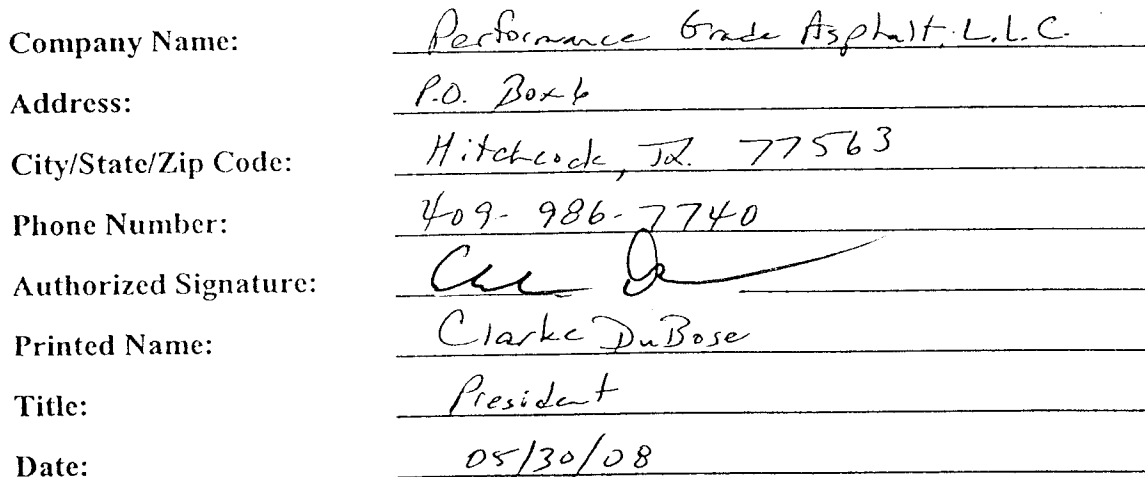 Company Name: Performance Grade Asphalt, L.L.C.
Address: P.O. Box 6
City/State/Zip Code: Hitchcock, TX. 77563
Phone Number: 409-986-7740
Authorized Signature:
Printed Name: Clarke DuBose
Title: President
Date: 05/30/08